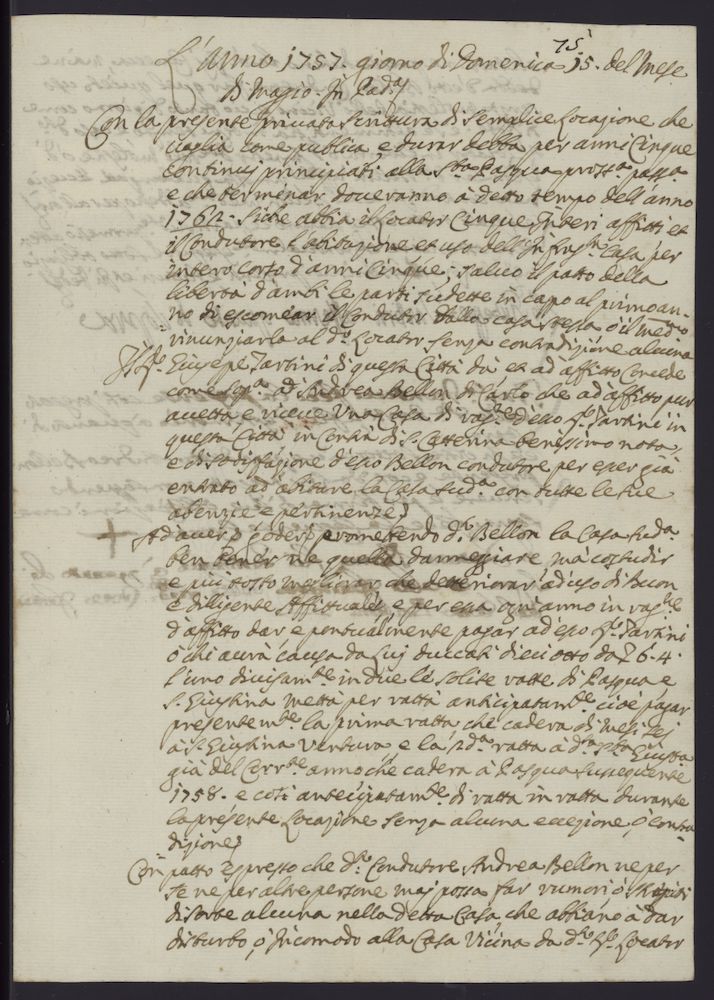 L'anno 1757. giorno di Domenica 15. del Mese
15
di Magio. In Pad.a
Con la presente privata scrittura di semplice locazione che
vaglia come publica, e durar debba per anni Cinque
continui principiati alla S.ta Pasqua pross.a pass.a
e che terminar doveranno à detto tempo dell'anno
1762. siche abbia il Locator Cinque Interi affitti et
il Condutore l'abitazione et uso dell'Infras.ta Casa per
intero corso d'anni Cinque; salvo il patto della
libertà d'ambi le parti sudette in capo al primo an-
no di escomear il Condutor dalla casa stessa ò il med.mo
rinunziarla al d.o Locator senza contradizione alcuna
Il S.r Giusepe Tartini di questa Città dà et ad affitto Concede
come sop.a ad Andrea Bellon di Carlo che ad affitto pur
accetta e riceve Una Casa di rag.ne d'esso S.r Tartini in
questa Città in Contrà di S. Catterina benissimo nota,
e di sodisfazione d'esso Bellon condutore per esser già
entrato ad abitare la Casa sud.a con tutte le sue
abenzie e pertinenze
Ad aver, e goder, promettendo d.o Bellon la Casa sud.a
ben tener ne quella danneggiare, mà costudir
e più tosto megliorar, che detteriorar ad uso di Buon
e diligente Affittuale, e per essa ogn'anno in rag.ne
d'affitto dar e pontualmente pagar ad esso S.r Tartini
ò chi avrà causa da Lui duccati dieciotto da £ 6-4.
l'uno divisam.te in due le solite ratte di Pasqua e
S. Giustina mettà per ratta anticipatam.te cioè pagar
presentem.te la prima ratta che caderà di Mesi sej
à S. Giustina ventura e la 2.da ratta à d.ta S.ta Giust.a
già del Corr.te anno che caderà à Pasqua susseguente
1758. e così antecipatam.te di ratta in ratta durante
la presente Locazione senza alcuna eccezione, ò contra
dizione
Con patto espresso che d.o Condutore Andrea Bellon ne per
se ne per altre persone maj possa far rumori ò strepiti
di sorte alcuna nella detta Casa, che abbiano à dar
disturbo, ò Incomodo alla Casa Vicina da d.o S.r Locator